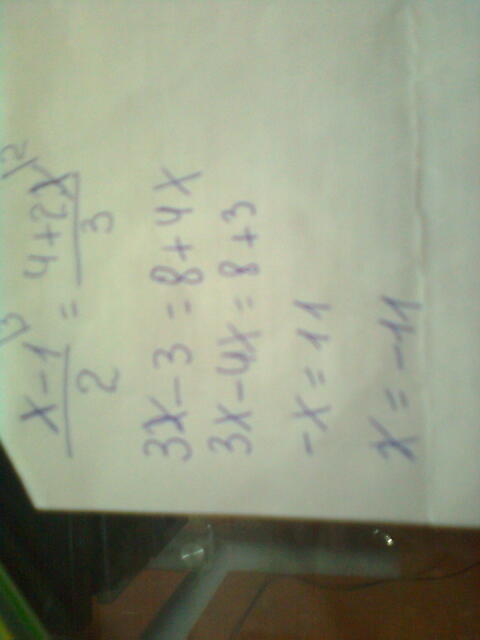 \3 \2
x-1/2 = 4+2x/3
3x-3 = 8+4x
3x-4x = 8+3
-x = 11
x = -11